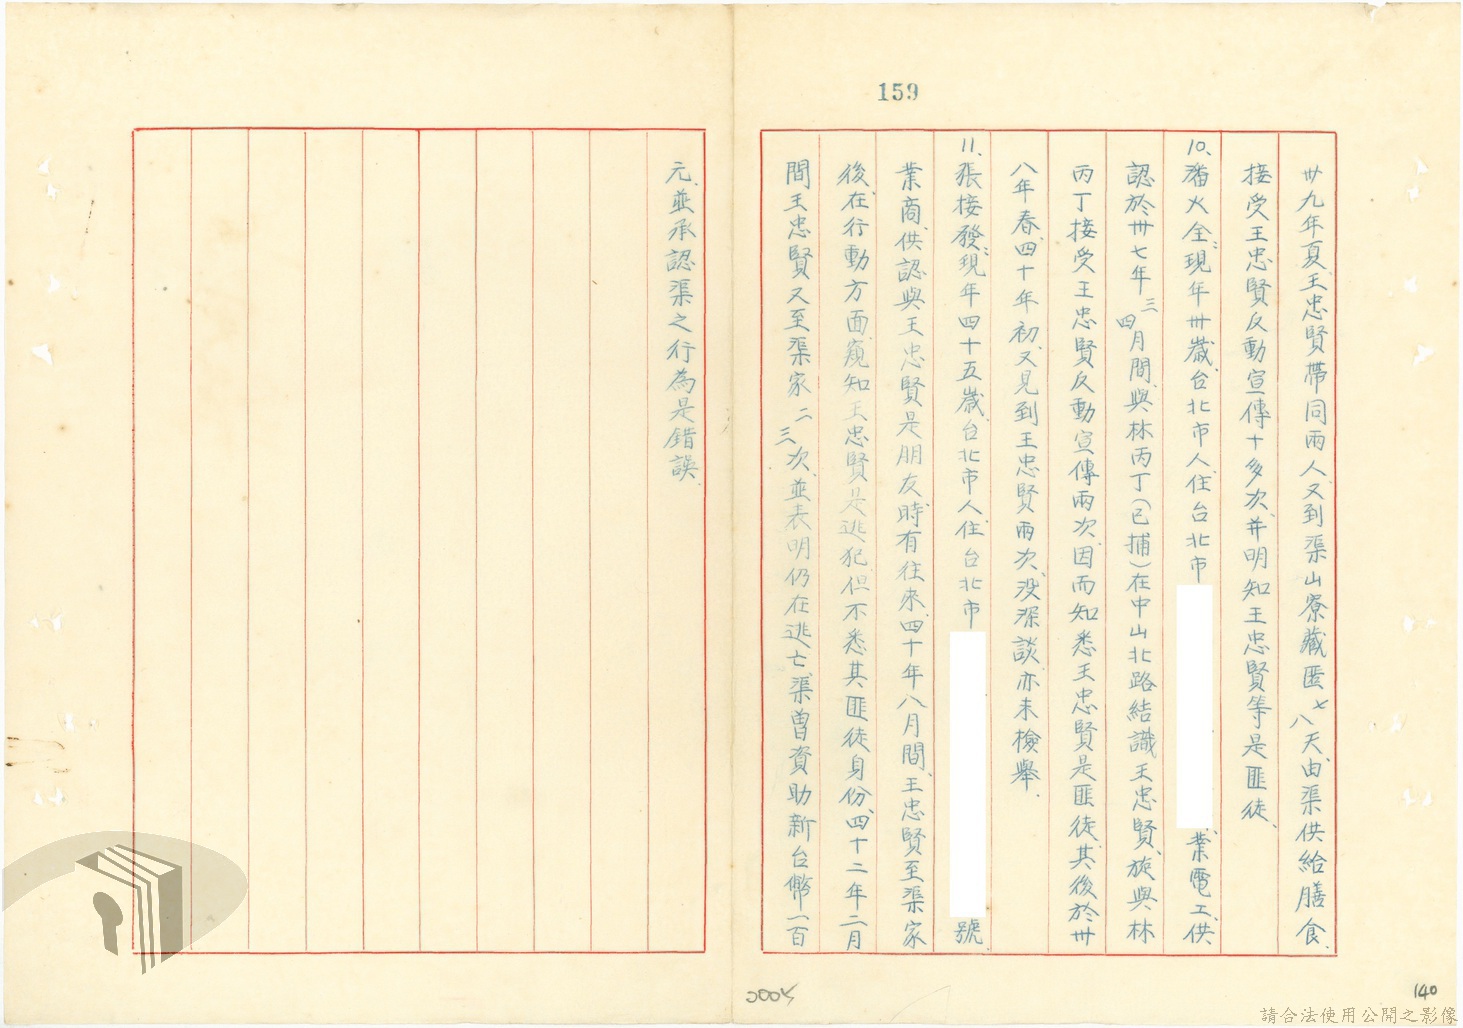 159
卅九年夏、王忠賢帶同兩人、又到渠山寮藏匿七八天、由渠供給膳食、
接受王忠賢反動宣傳十多次、并明知王忠賢等是匪徒、
10、潘火全：現年卅歲、台北市人、住台北市、業電工、供
認於卅七年三四月間、與林丙丁（已捕）在中山北路結識王忠賢、旋與林
丙丁接受王忠賢反動宣傳兩次、因而知悉王忠賢是匪徒、其後於卅
八年春、四十年初、又見到王忠賢兩次、沒深談、亦未檢舉．
11、張接發：現年四十五歲、台北市人、住台北市號
業商、供認與王忠賢是朋友、時有往來、四十年八月間、王忠賢至渠家
後、在行動方面窺知王忠賢是逃犯、但不悉其匪徒身份、四十二年二月
間王忠賢又至渠家二三次、並表明仍在逃亡、渠曾資助新台幣一百
元、並承認渠之行為是錯誤．
140
請合法使用公開之影像